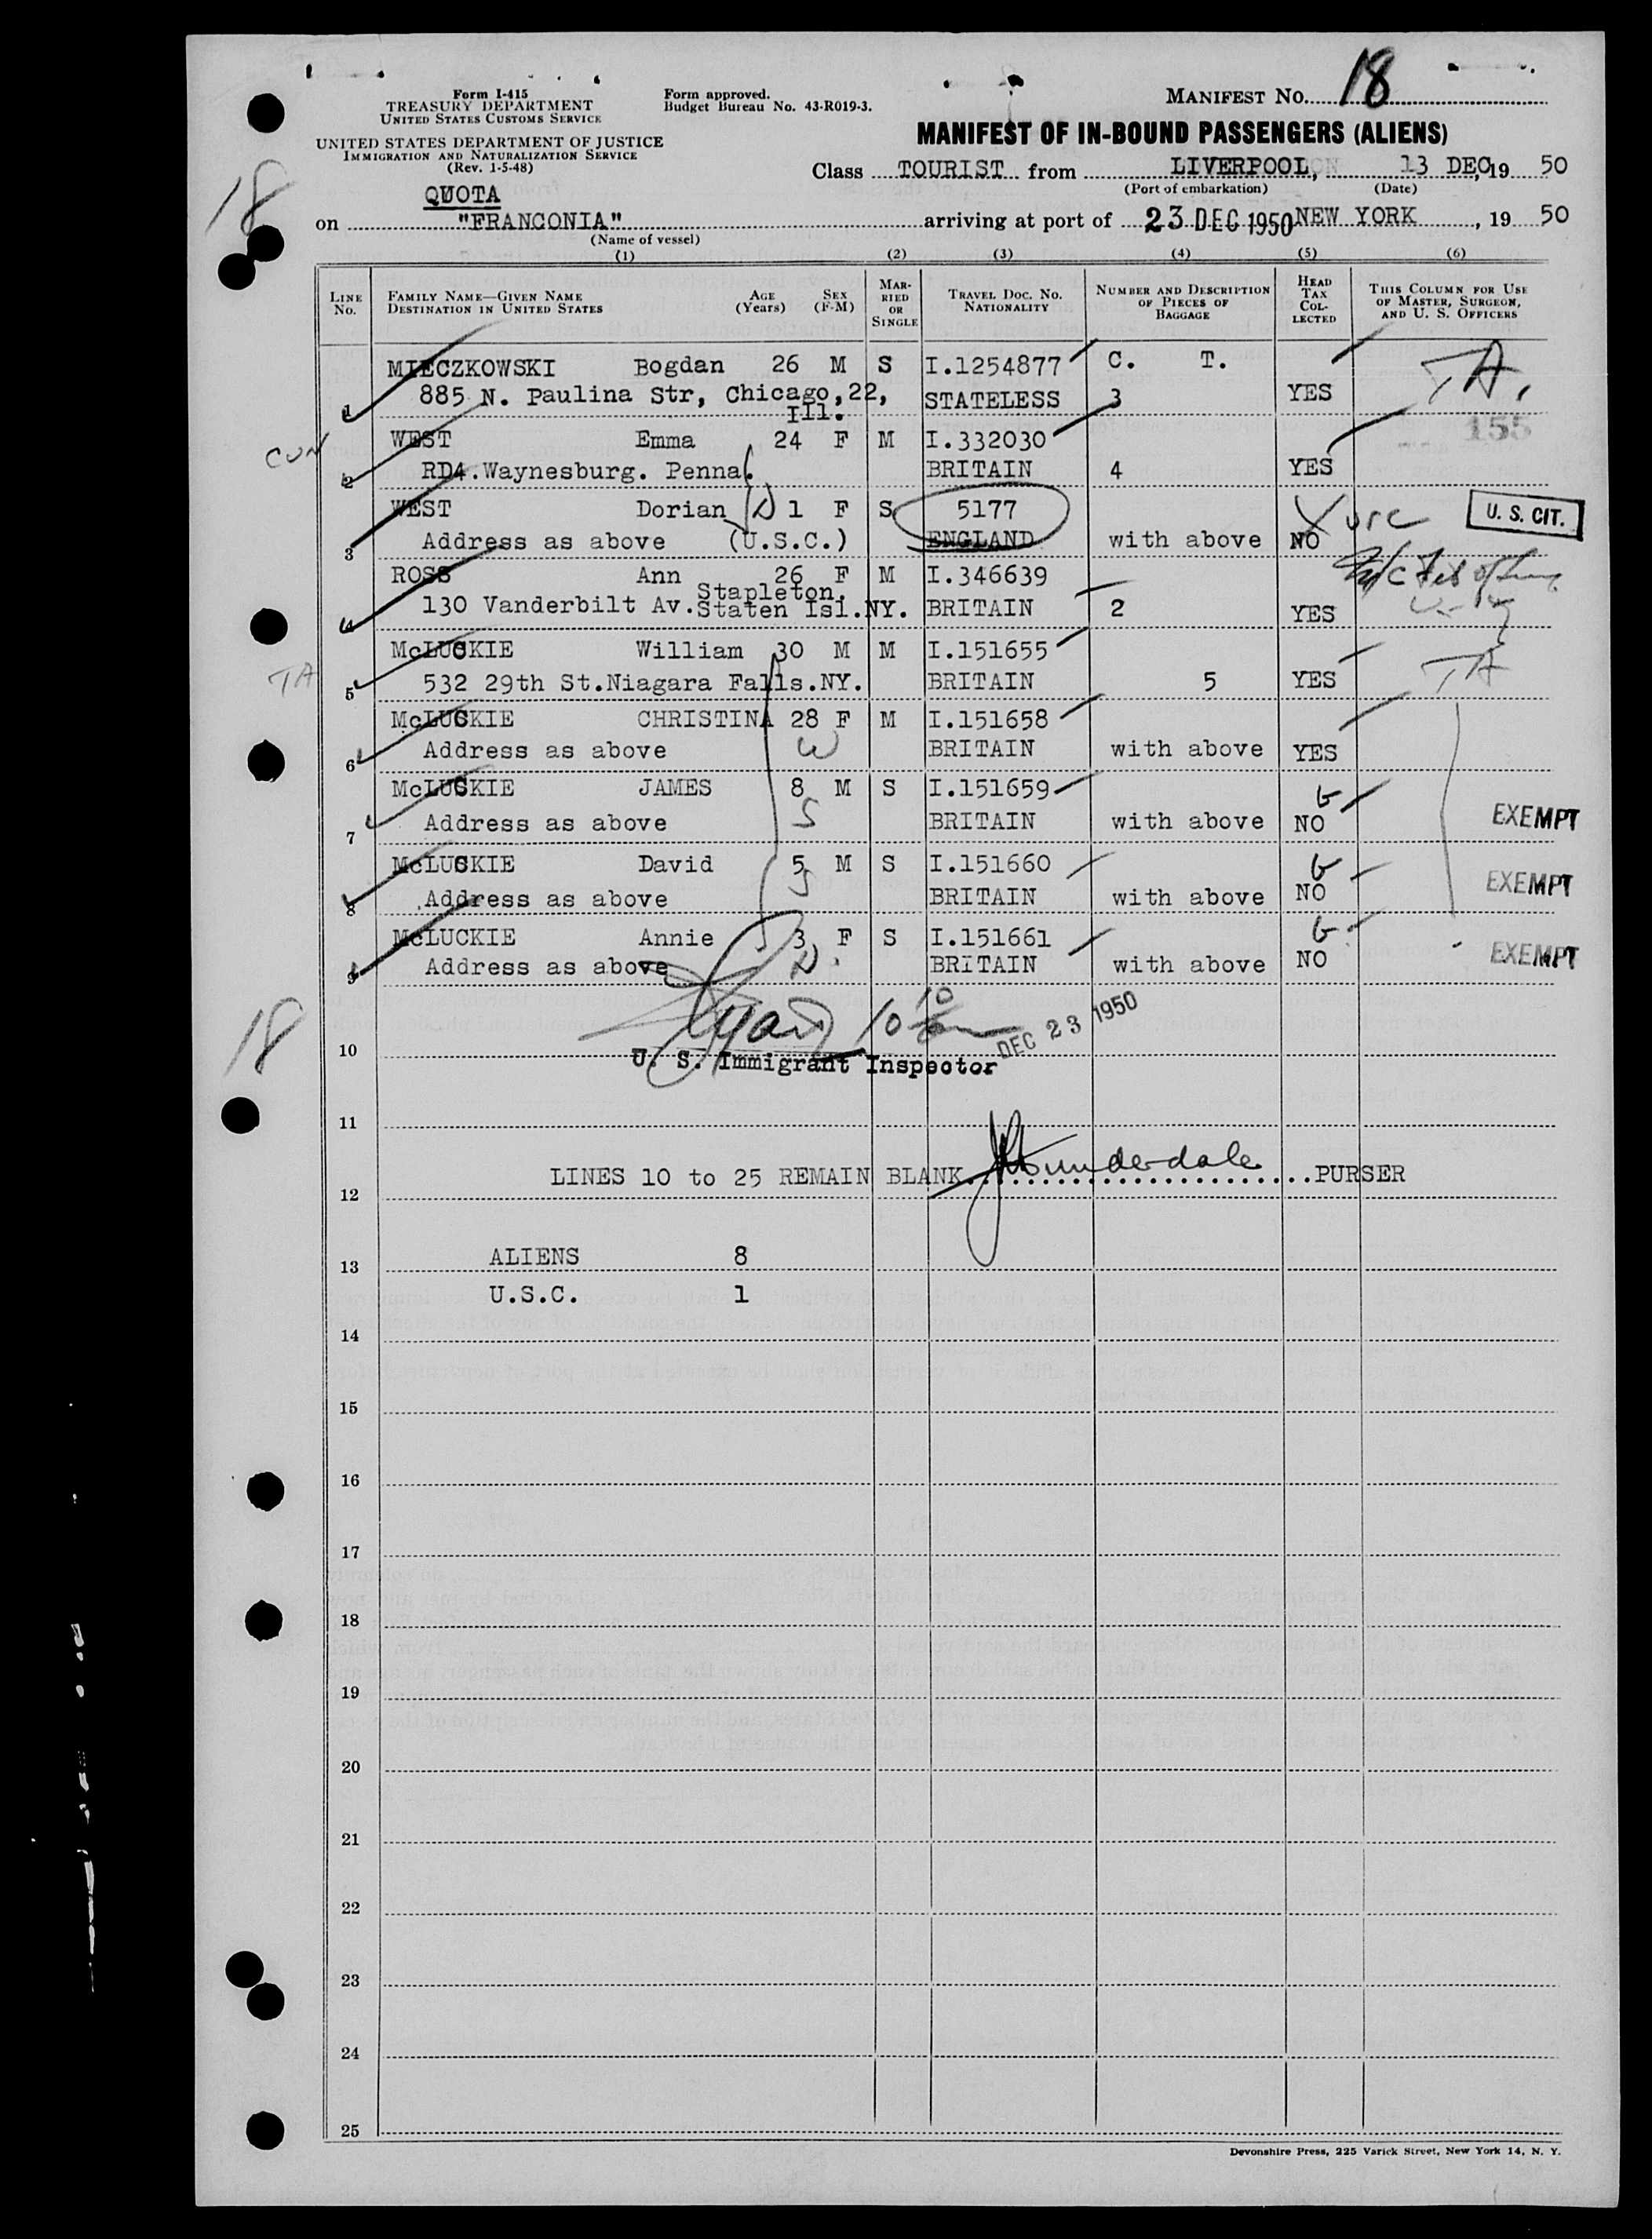 Form I-415
TREASURY DEPARTMENT
UNITED STATES CUSTOMS SERVICE
UNITED STATES DEPARTMENT OF JUSTICE
IMMIGRATION AND NATURALIZATION SERVICE
(Rev. 1-5-48)
Form approved.
Budget Bureau No. 43-R019-3.
MANIFEST No. 18
MANIFEST OF IN-BOUND PASSENGERS (ALIENS)
Class TOURIST from LIVERPOOL, 13 DEC, 19 50
(Port of embarkation) (Date)
18
QUOTA
on "FRANCONIA" arriving at port of 23 DEC 1950 NEW YORK, 19 50
(Name of vessel)
(1) (2) (3) (4) (5) (6)
LINE No. FAMILY NAME—GIVEN NAME DESTINATION IN UNITED STATES AGE (Years) SEX (F-M) MARRIED OR SINGLE TRAVEL DOC. NO. NATIONALITY NUMBER AND DESCRIPTION OF PIECES OF BAGGAGE HEAD TAX COLLECTED THIS COLUMN FOR USE OF MASTER, SURGEON, AND U. S. OFFICERS
MIECZKOWSKI Bogdan 26 M S I.1254877 C. T. TA.
1 885 N. Paulina Str, Chicago,22, Ill. STATELESS 3 YES
WEST Emma 24 F M I.332030 155
CON
2 RD4.Waynesburg. Penna. BRITAIN 4 YES
WEST Dorian D 1 F S 5177 X USC U. S. CIT.
3 Address as above (U.S.C.) ENGLAND with above NO
ROSS Ann 26 F M I.346639
4 130 Vanderbilt Av. Stapleton, Staten Isl.NY. BRITAIN 2 YES
McLUCKIE William 30 M M I.151655
TA
5 532 29th St.Niagara Falls.NY. BRITAIN 5 YES TA
McLUCKIE CHRISTINA 28 F M I.151658
6 Address as above W BRITAIN with above YES
McLUCKIE JAMES 8 M S I.151659 G
7 Address as above S BRITAIN with above NO EXEMPT
McLUCKIE David 5 M S I.151660 G
8 Address as above S BRITAIN with above NO EXEMPT
McLUCKIE Annie 3 F S I.151661 G
9 Address as above D. BRITAIN with above NO EXEMPT
18
10 U. S. Immigrant Inspector DEC 23 1950
11
LINES 10 to 25 REMAIN BLANK. Sunderdale PURSER
12
ALIENS 8
13
U.S.C. 1
14
15
16
17
18
19
20
21
22
23
24
25
Devonshire Press, 225 Varick Street, New York 14, N. Y.